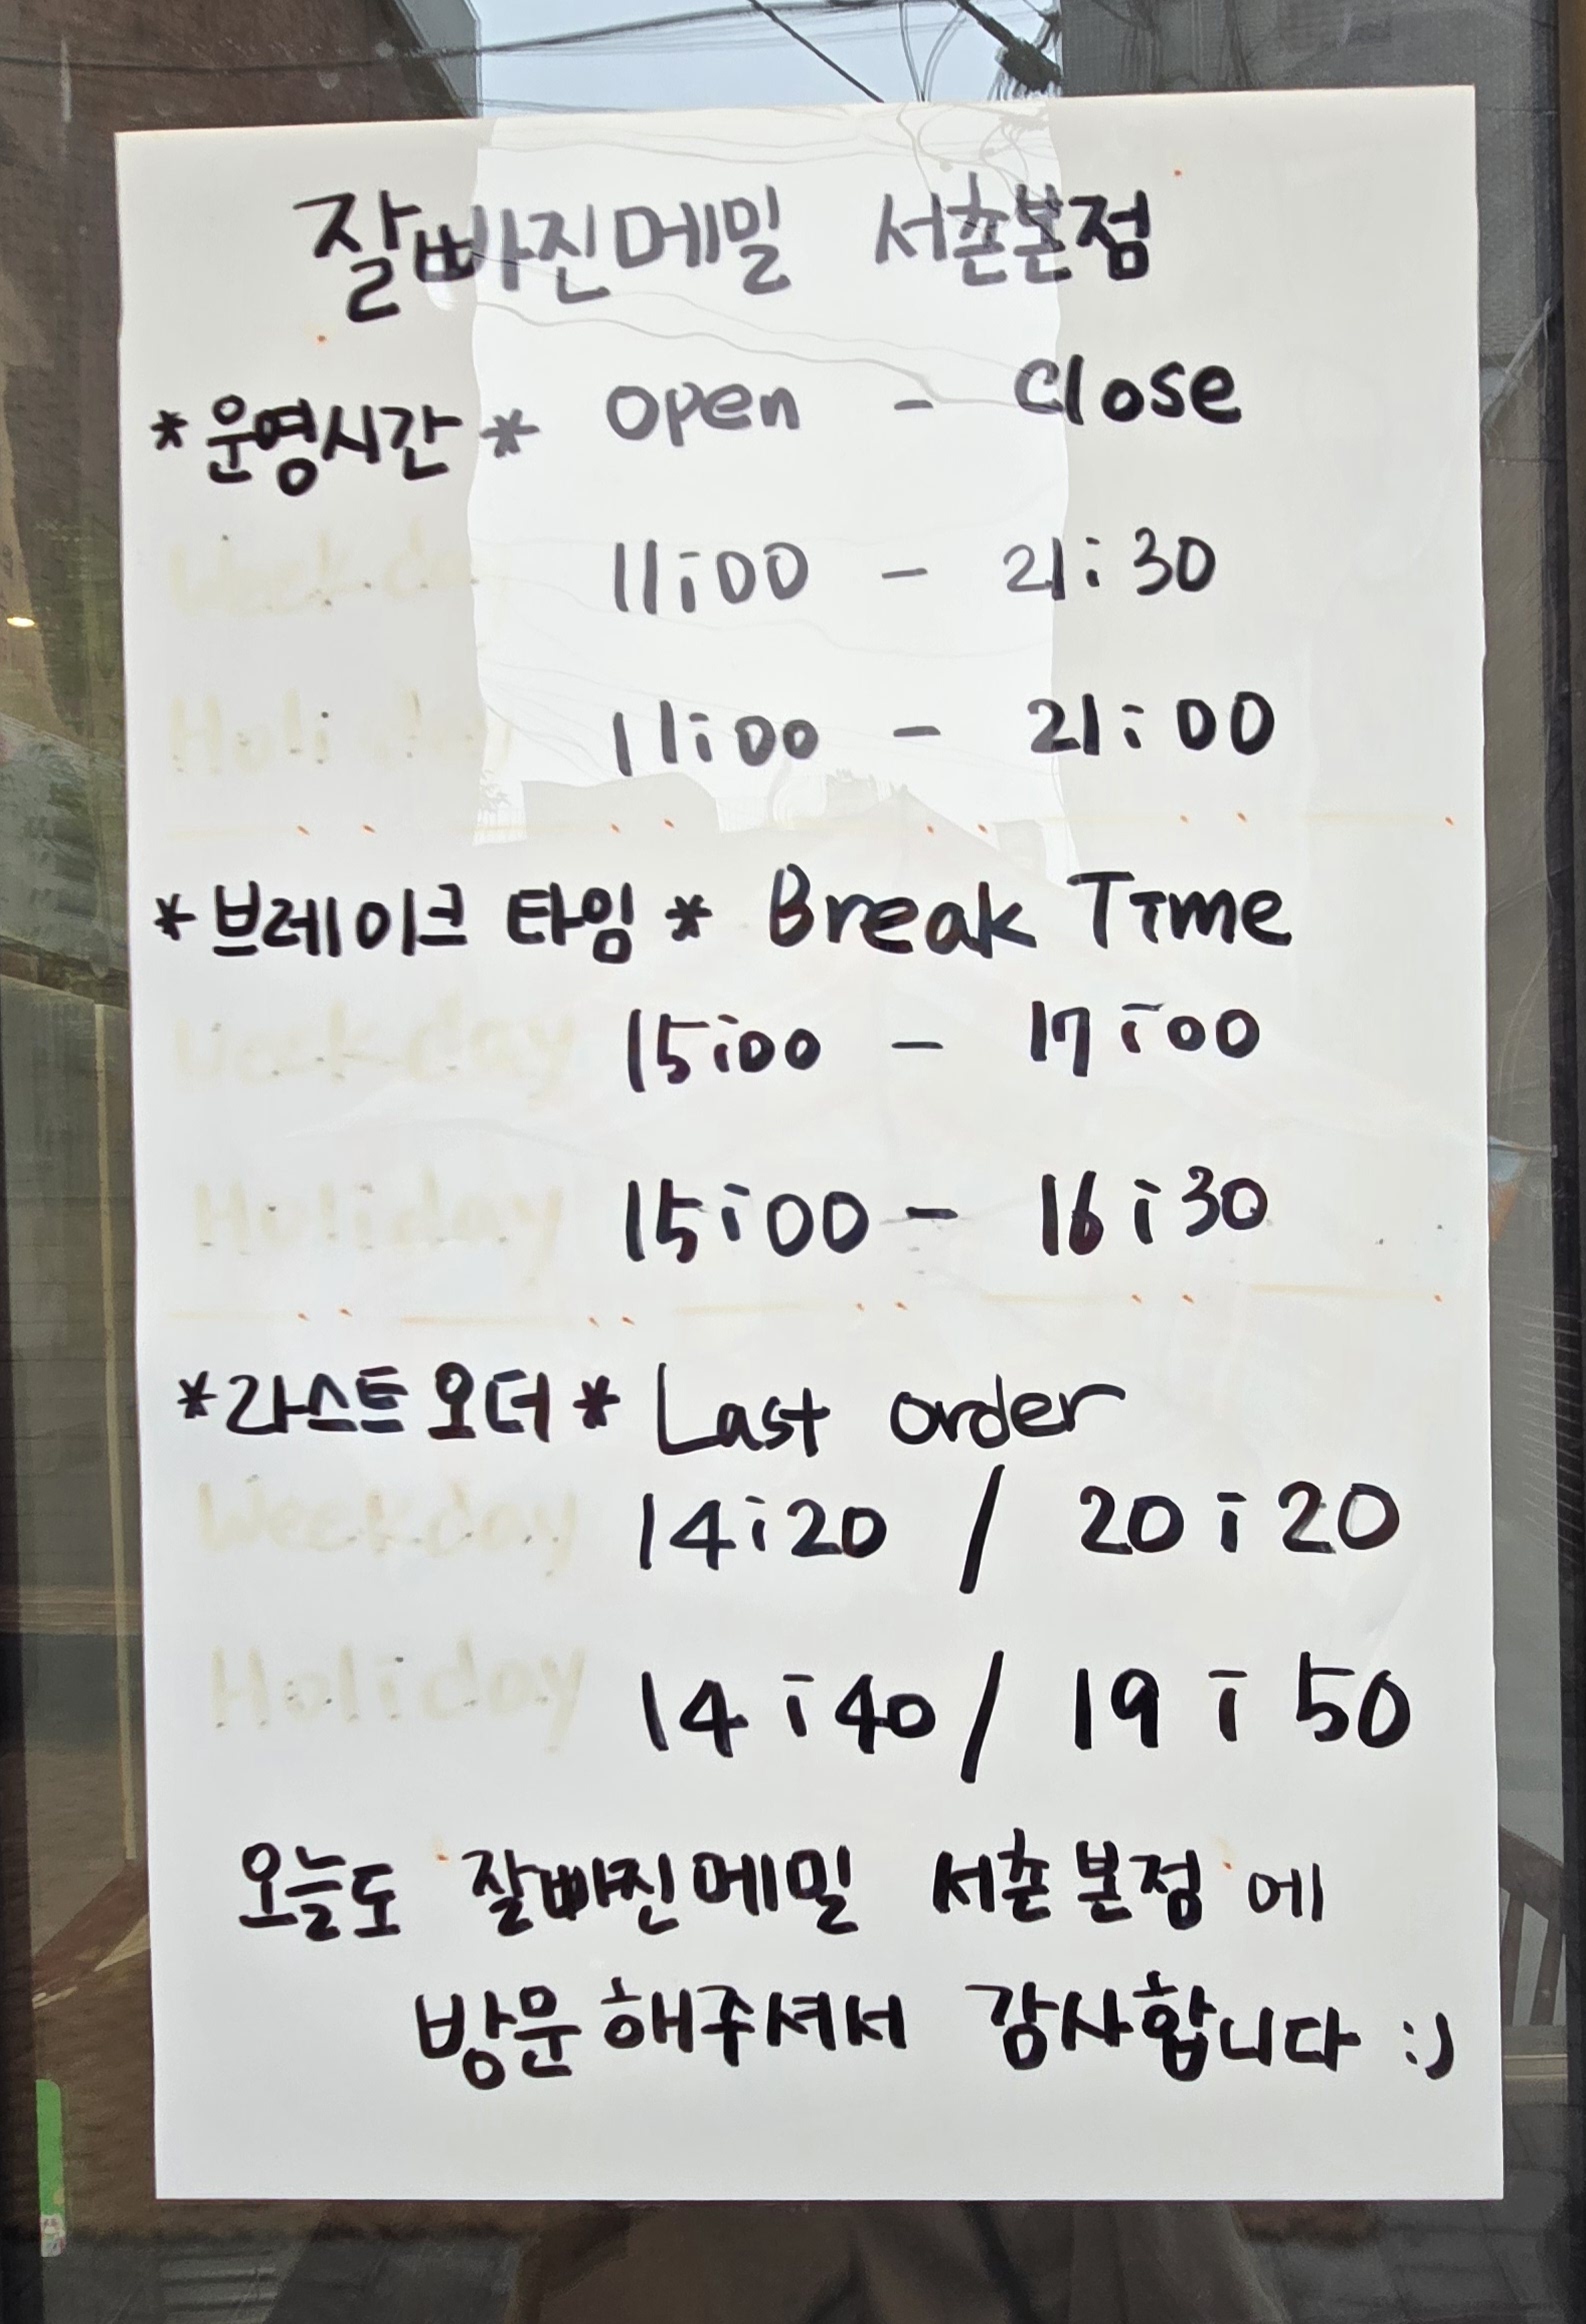 잘빠진메밀 서촌본점
*운영시간* open - close
Weekday 11:00 - 21:30
Holiday 11:00 - 21:00
*브레이크 타임* Break Time
Weekday 15:00 - 17:00
Holiday 15:00 - 16:30
*라스트오더* Last order
Weekday 14:20 / 20:20
Holiday 14:40 / 19:50
오늘도 잘빠진메밀 서촌본점에
방문해주셔서 감사합니다 :)